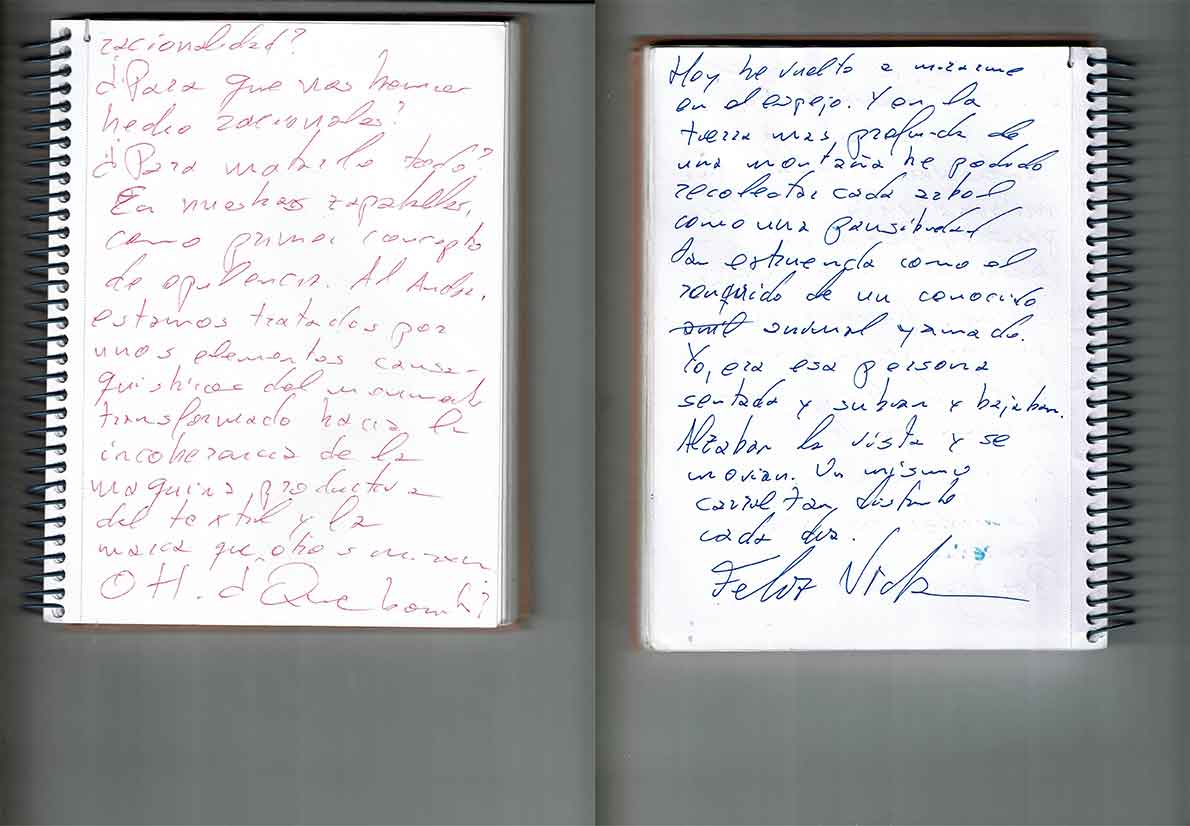 racionalidad?
¿Para que nos hemos
hecho racionales?
¿Para matarlo todo?
En nuestras zapatillas,
como primer concepto
de opulencia. Al Andar,
estamos tratados por
unos elementos
del
transformado hacia la
incoherencia de la
maquina productiva
del textil y la
marca que otros miran
OH. ¿Que
Hoy he vuelto a mirarme
en el espejo. Y en la
tierra mas profunda de
una montaña he podido
recolectar cada arbol
como una
tan como el
de un conocido
y amado.
Yo, era esa persona
sentada y subian y bajaban.
Alzaban la vista y se
movian. Un mismo
carril tan distinto
cada dia.
Feliz Vida